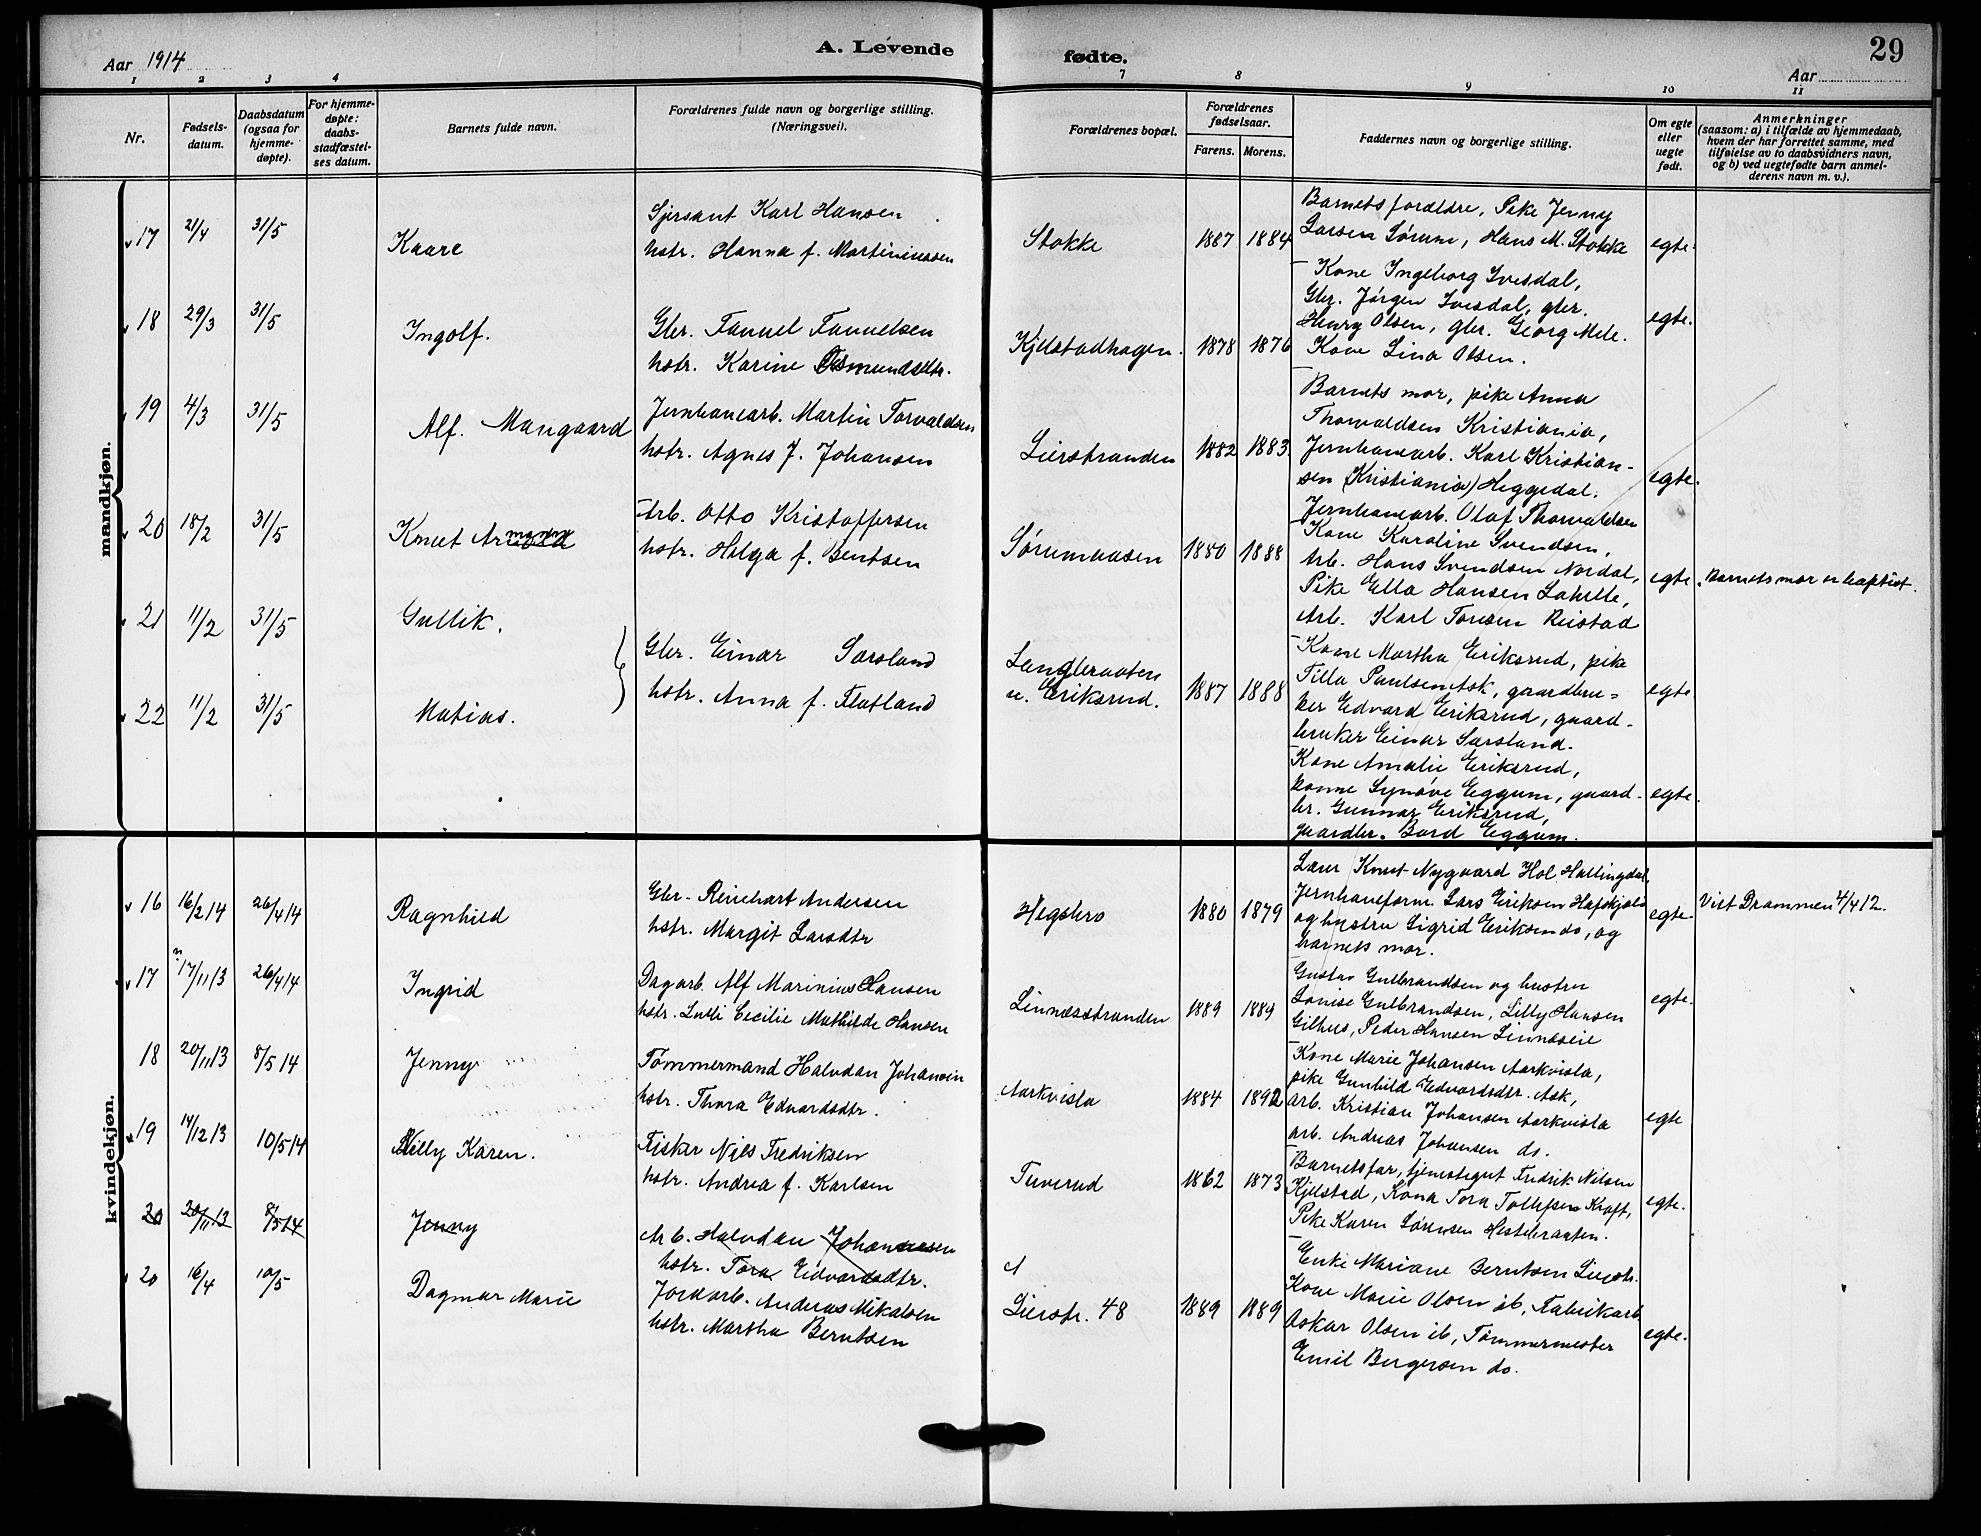 Aar 1914
A. Levende
fødte.
29
Aar
1 2 3 4
7 8 9 10 11
Nr.
Fødsels-
datum.
Daabsdatum
(ogsaa for
hjemme-
døpte).
For hjemme-
døpte:
daabs-
stadfæstel-
ses datum.
Barnets fulde navn.
Forældrenes fulde navn og borgerlige stilling.
(Næringsvei).
Forældrenes bopæl.
Forældrenes
fødselsaar.
Farens. Morens.
Faddernes navn og borgerlige stilling.
Om egte
eller
uegte
født.
Anmerkninger
(saasom: a) i tilfælde av hjemmedaab,
hvem der har forrettet samme, med
tilføielse av to daabsvidners navn,
og b) ved uegtefødte barn anmel-
derens navn m. v.).
mandkjøn.
17 21/4 31/5 Kaare
Sjersant Karl Hansen
hstr. Hanna f. Martininssen
Stokke 1887 1884
Barnets forældre, Pike Jenny
Larsen Sørum, Hans M. Stokke
egte.
18 29/3 31/5 Ingolf.
Gbr. Fanuel Fanuelsen
hstr. Karine Osmundsdtr.
Kjelstadhagen. 1878 1876
Kone Ingeborg Ivesdal,
Gbr. Jørgen Ivesdal, gbr.
Henry Olsen, gbr. Georg Mele.
Kone Lina Olsen.
egte.
19 4/3 31/5 Alf. Mangaard
Jernbanearb. Martin Torvaldsen
hstr. Agnes J. Johansen
Lierstranden 1882 1883.
Barnets mor, pike Anna
Thorvaldsen Kristiania,
Jernbanearb. Karl Kristian-
sen (Kristiania) Heggedal.
Jernbanearb. Olaf Thorvaldsen
egte.
20 18/2 31/5 Knut
Arb. Otto Kristoffersen
hstr. Helga f. Bentsen
Sørumaasen 1880 1888
Kone Karoline Svendsen,
Arb. Hans Svendsen Nordal,
Pike Ella Hansen Lahelle,
Arb. Karl Toresen Reistad
egte. Barnets mor er baptist.
21 11/2 31/5 Gullik.
22 11/2 31/5 Matias.
Gbr. Einar Sørsland
hstr. Anna f. Flatland
Langbraaten
u. Eriksrud. 1887 1888
Kone Martha Eriksrud, pike
Tilla Paulsen Ask, gaardbru-
ker Edvard Eriksrud, gaard-
bruker Einar Sørsland.
egte
Kone Amalie Eriksrud,
kone Synøve Eggum, gaard-
br. Gunnar Eriksrud,
gaardbr. Bård Eggum.
egte.
kvindekjøn.
16 16/2 14 26/4 14 Ragnhild
Gbr. Reinhart Andersen
hstr. Margit Larsdtr
Hegsbro 1880 1879
Lærer Knut Nygaard Hol Hallingdal,
Jernbaneform. Lars Eriksen Hafskjold
og hustru Sigrid Eriksen do, og
barnets mor.
egte. Viet Drammen 4/4 12.
17 17/11 13 26/4 14 Ingrid
Dagarb. Alf Marinius Hansen
hstr. Lulli Cecilie Mathilde Hansen
Linnesstranden 1889 1889
Gustav Gulbrandsen og hustru
Louise Gulbrandsen, Lilly Hansen
Gilhus, Peder Hansen Linneseie
egte.
18 20/11 13 8/5 14 Jenny
Tømmermand Halvdan Johansen
hstr. Thora Edvardsdtr.
Aarkvisla 1884 1892
Kone Marie Johansen Aarkvisla,
pike Gunhild Edvardsdtr. Ask,
arb. Kristian Johansen Aarkvisla
arb. Andreas Johansen do.
egte
19 14/12 13 10/5 14 Nelly Karen.
Fisker Nils Fredriksen
hstr. Andrea f. Karlsen
Tuverud 1862 1873
Barnets far, tjenestegut Fredrik Nilsen
Kjelstad, Kona Tora Tollefsen Kroft,
Pike Karen Sørensen Hestebraaten.
egte.
20 20/11 13 8/5 14 Jenny
Arb. Halvdan Johannesen
hstr. Tora Edvardsdtr.
20 16/4 10/5 Dagmar Marie
Jordarb. Anders Mikalsen
hstr. Martha Berntsen
Lierstr. 48 1889 1889
Enke Mariane Berntsen Lierstr.
Kone Marie Olsen ib, Fabrikarb.
Oskar Olsen ib, Tømmermester
Emil Bergersen do.
egte.